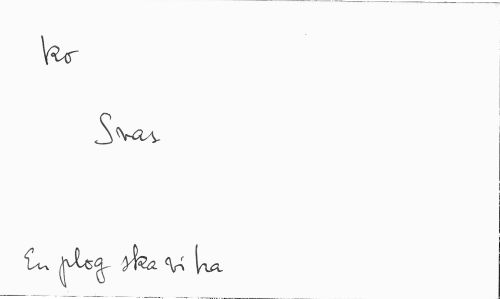 ko
Svas
En plog ska vi ha